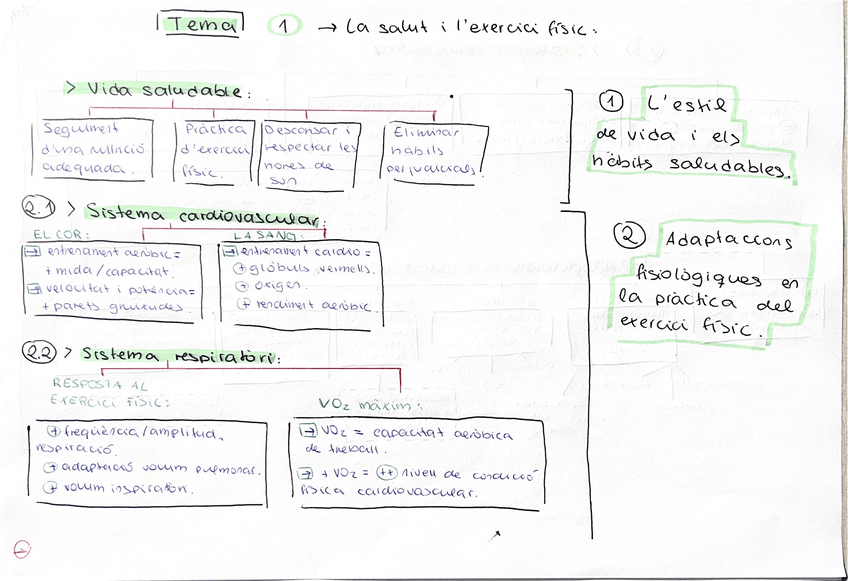 Tema 1 → La salut i l'exercici físic:
> Vida saludable:
Seguiment
d'una nutrició
adequada.
Pràctica
d'exercici
físic.
Descansar i
respectar les
hores de
son
Eliminar
hàbits
perjudicials.
① L'estil
de vida i els
hàbits saludables.
2.1 > Sistema cardiovascular:
EL COR:
→ entrenament aeròbic =
+ mida/capacitat.
→ velocitat i potència =
+ parets gruixudes.
LA SANG:
→ entrenament cardio =
+ glòbuls vermells.
+ oxigen.
+ rendiment aeròbic.
② Adaptacions
fisiològiques en
la pràctica del
exercici físic.
2.2 > Sistema respiratòri:
RESPOSTA AL
EXERCICI FÍSIC:
+ freqüència/amplitud,
respiració.
+ adaptació volum pulmonar.
+ volum inspiratòri.
VO2 màxim:
→ VO2 = capacitat aeròbica
de treball.
→ + VO2 = ++ nivell de condició
física cardiovascular.